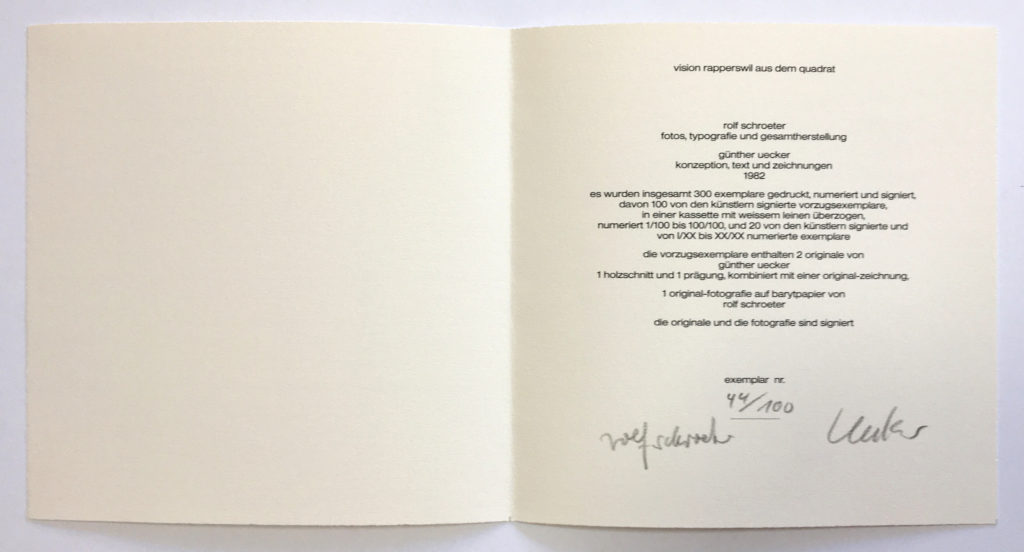 vision rapperswil aus dem quadrat
rolf schroeter
fotos, typografie und gesamtherstellung
günther uecker
konzeption, text und zeichnungen
1982
es wurden insgesamt 300 exemplare gedruckt, numeriert und signiert,
davon 100 von den künstlern signierte vorzugsexemplare,
in einer kassette mit weissem leinen überzogen,
numeriert 1/100 bis 100/100, und 20 von den künstlern signierte und
von I/XX bis XX/XX numerierte exemplare
die vorzugsexemplare enthalten 2 originale von
günther uecker
1 holzschnitt und 1 prägung, kombiniert mit einer original-zeichnung,
1 original-fotografie auf barytpapier von
rolf schroeter
die originale und die fotografie sind signiert
exemplar nr.
44/100
rolf schroeter Uecker